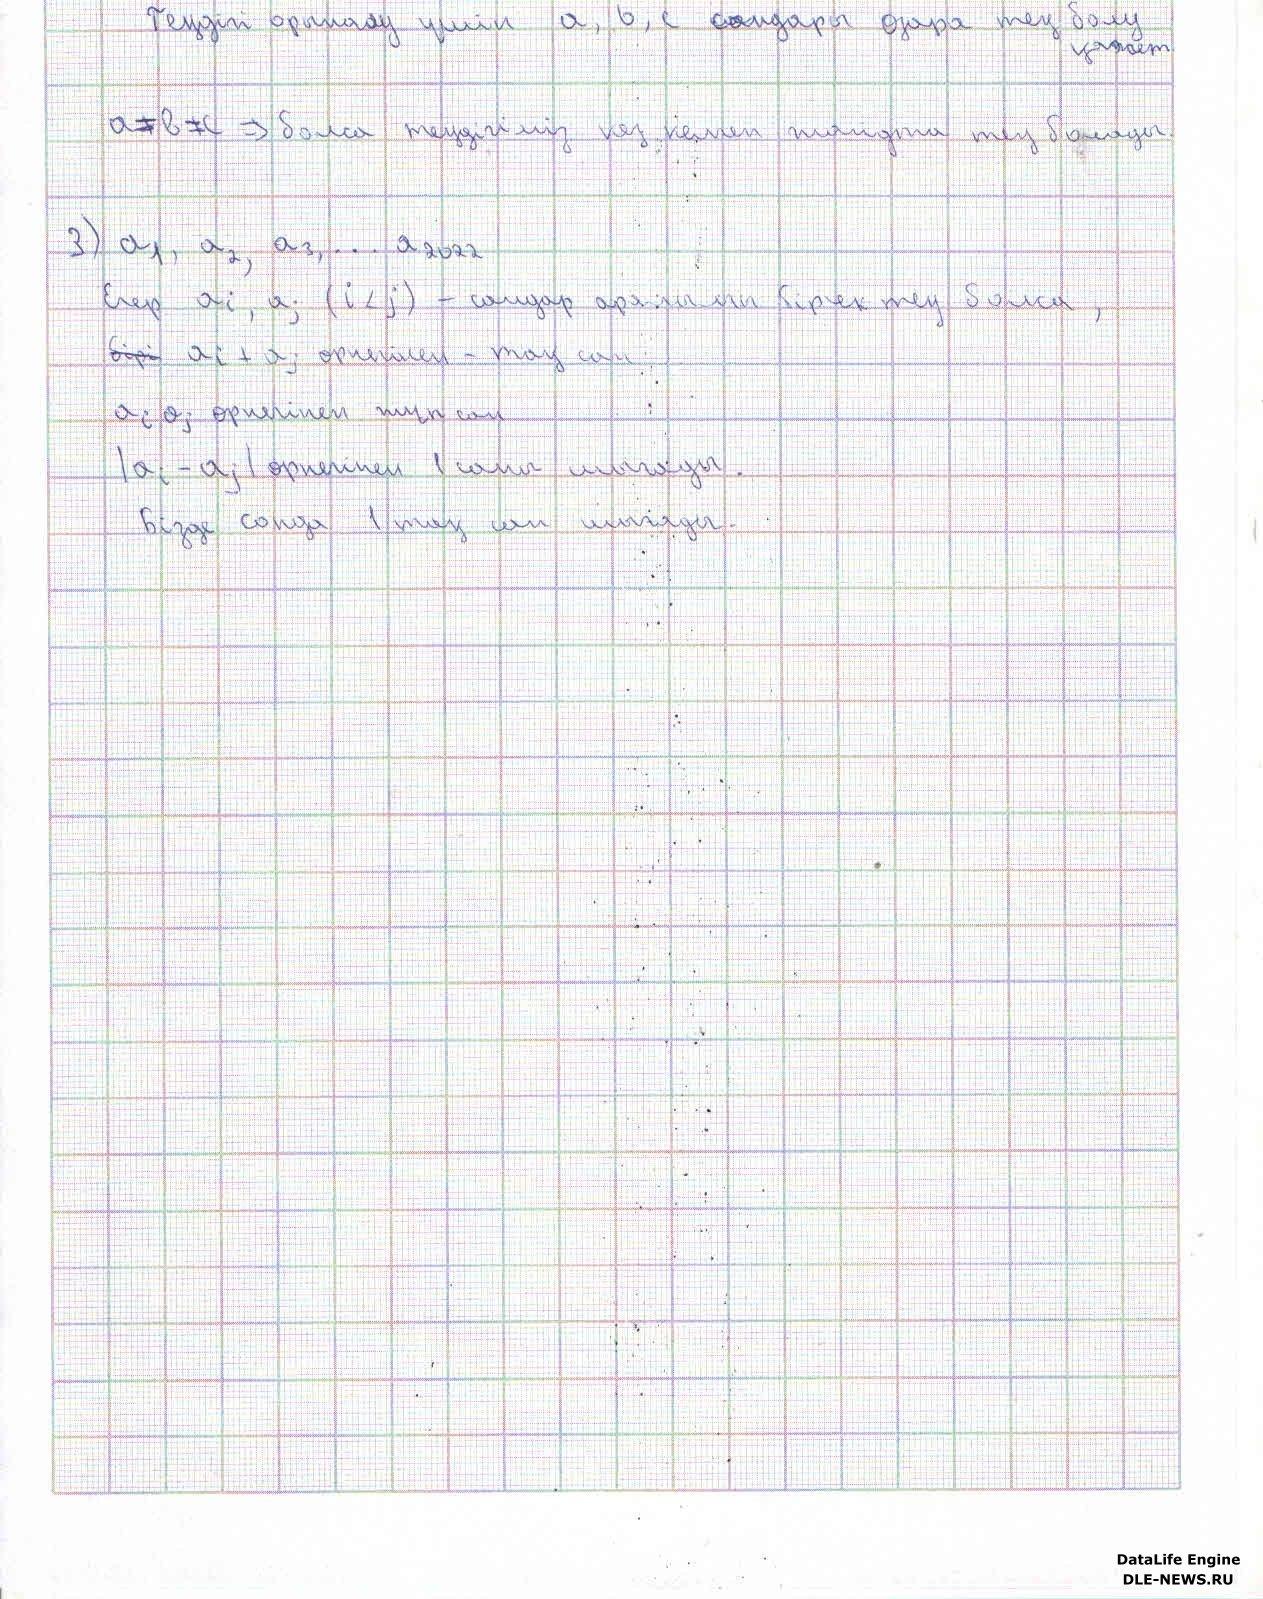 Теңдігі орындалу үшін a, b, c сандары өзара тең болу
қажет
a=b=c => болса теңдігіміз кез келген жағдайда тең болады.
3) a1, a2, a3, ... a2022
Егер ai, aj (i<j) - сандар
тең болса,
ai + aj өрнегінен - тақ сан
ai aj өрнегінен жұп сан
|ai - aj| өрнегінен 1 саны шығады.
Бізде сонда 1 тақ сан шығады.
DataLife Engine
DLE-NEWS.RU